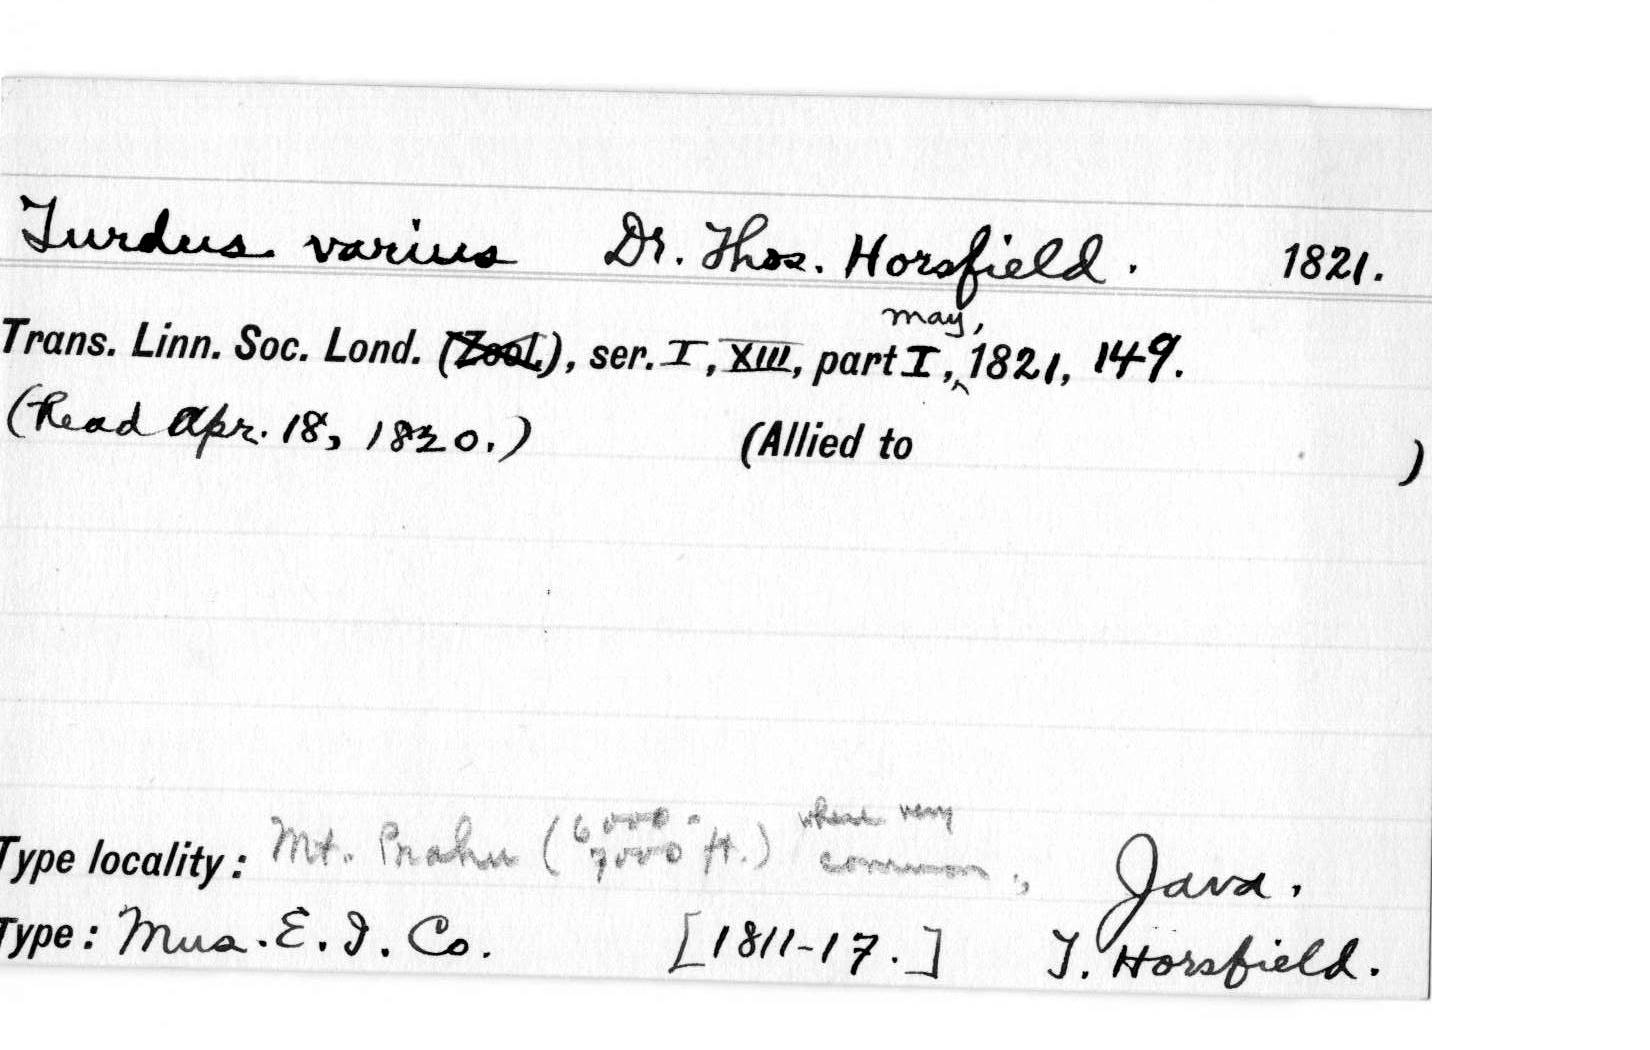 Turdus varius Dr. Thos. Horsfield. 1821.
Trans. Linn. Soc. Lond. (Zool.), ser. I, XIII, part I, may, 1821, 149.
(Read Apr. 18, 1820.) (Allied to )
Type locality: Mt. Prahu (6000-7000 ft.) where very common, Java.
Type: Mus. E. I. Co. [1811-17.] T. Horsfield.